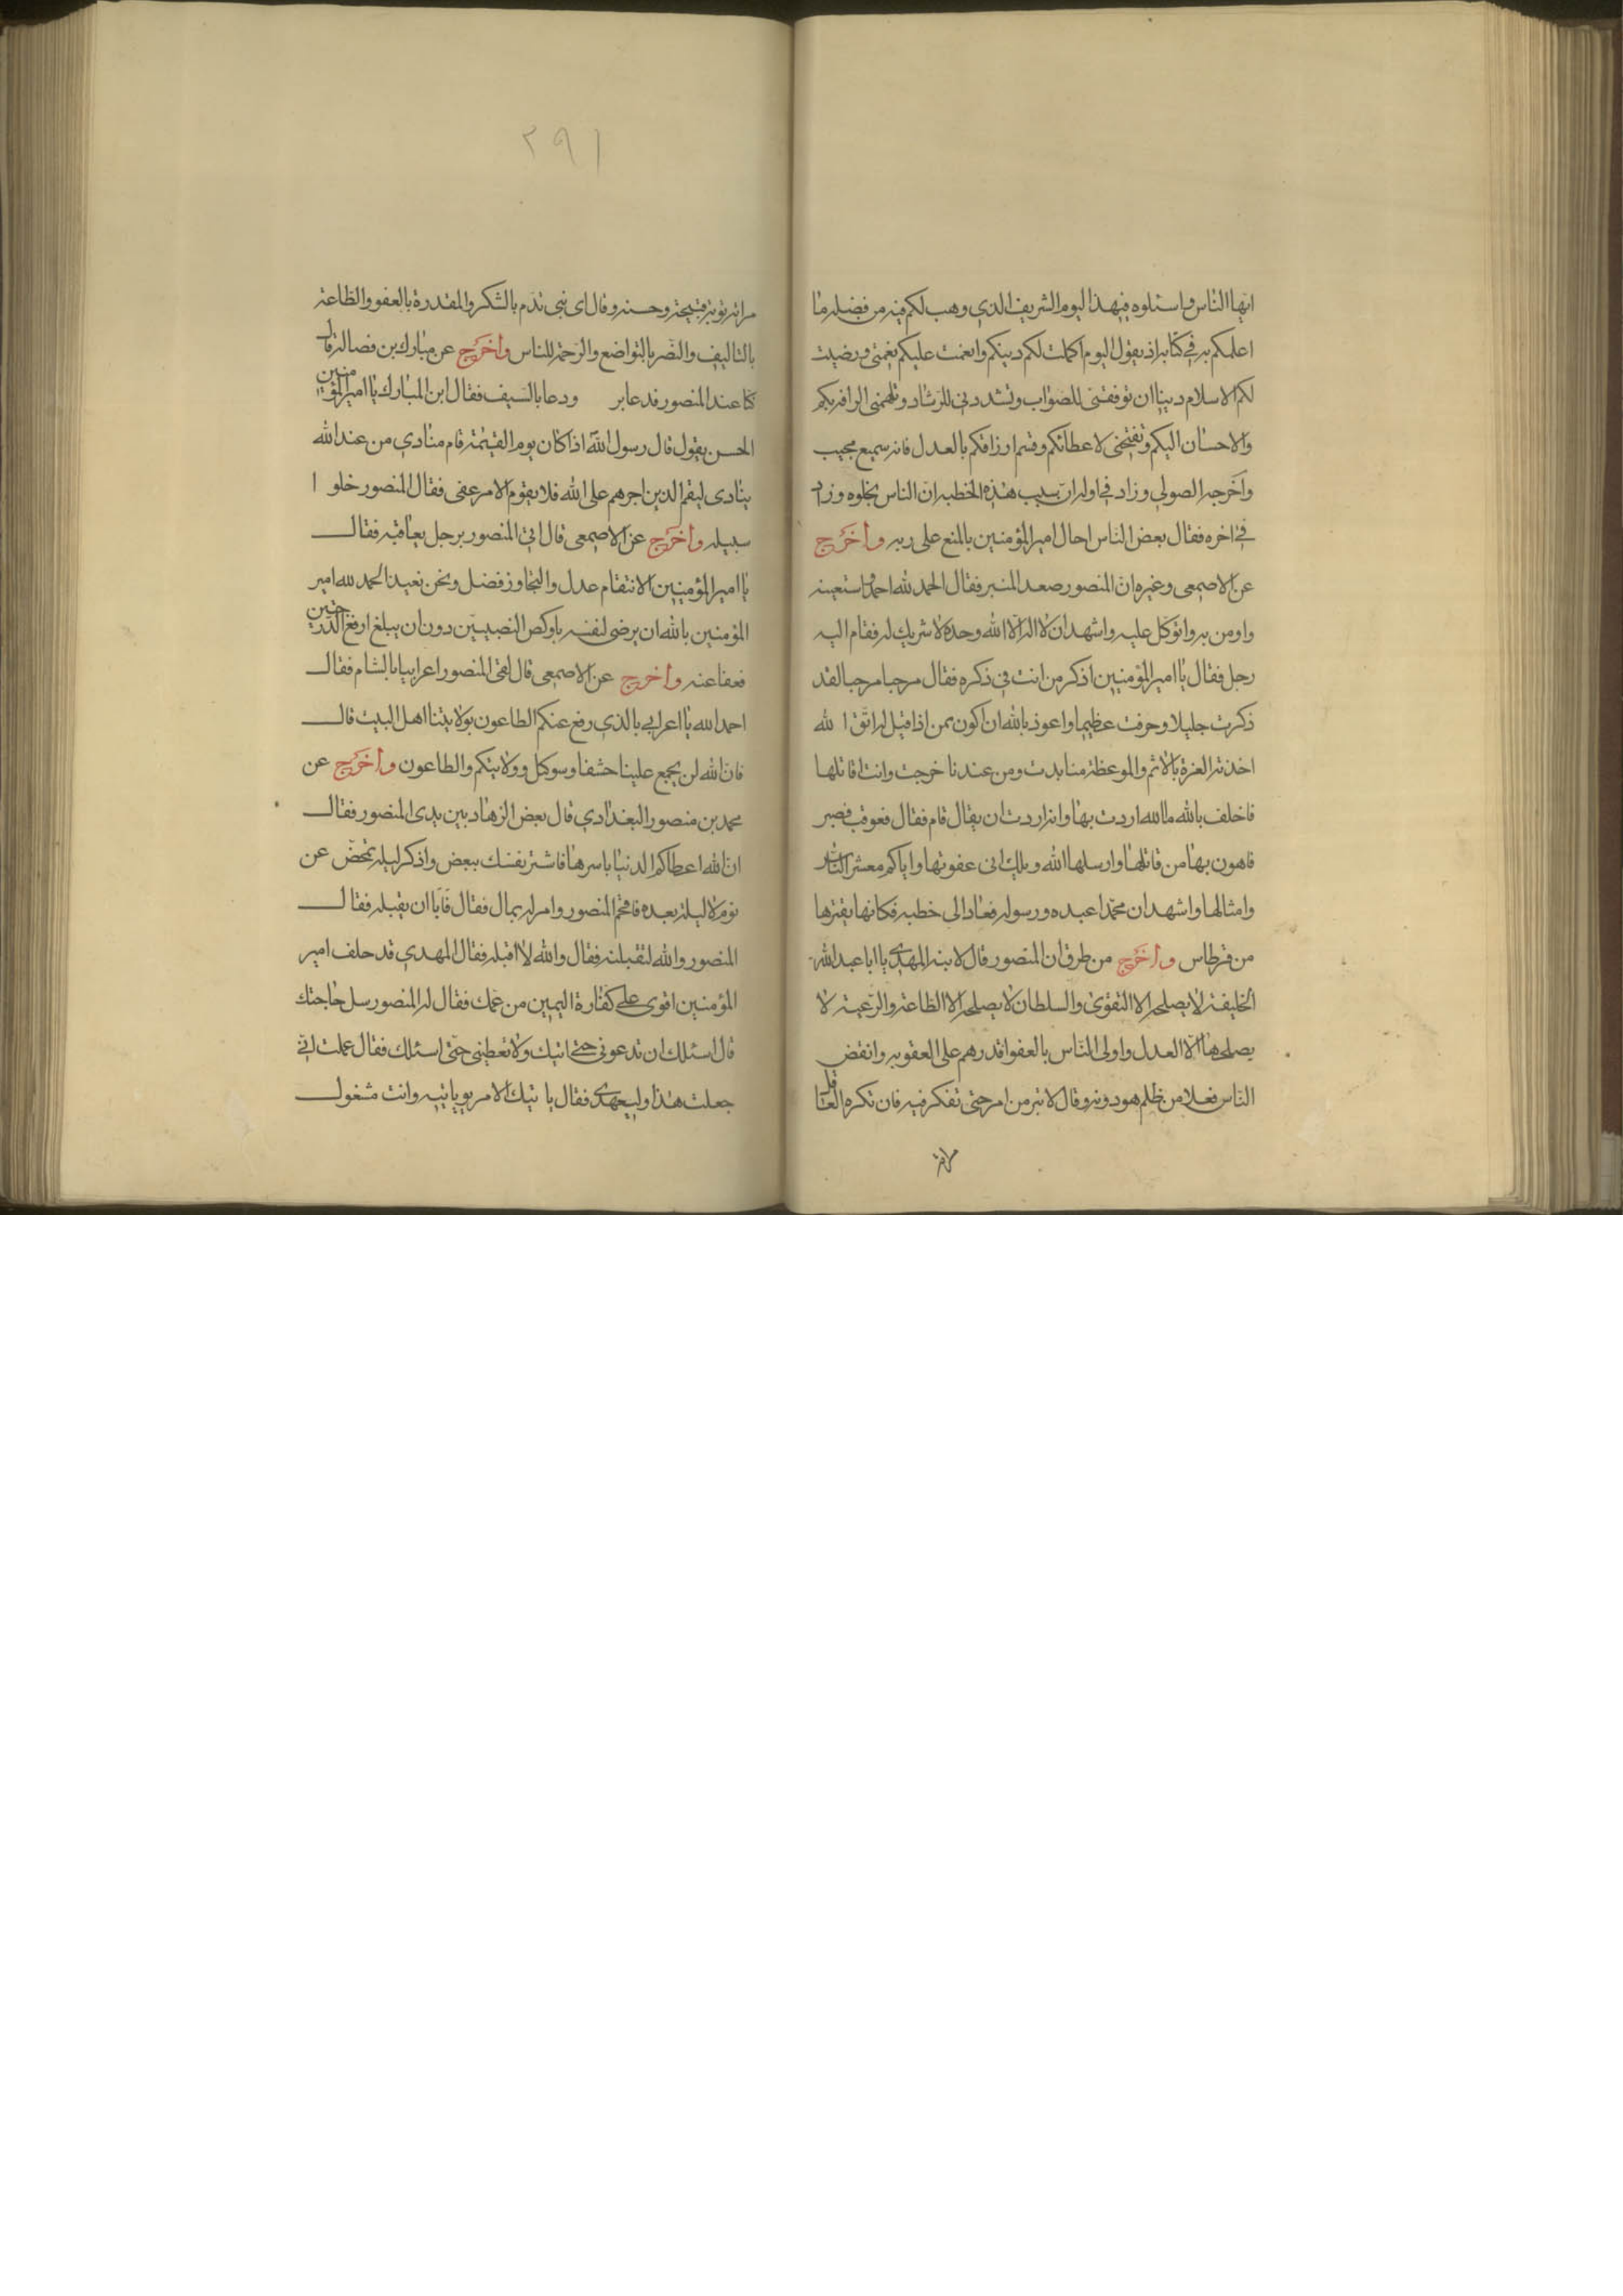 ايها الناس واسئلوه في هذا اليوم الشريف الذي وهب لكم فيه من فضله ما
اعلمكم به في كتابه اذ يقول اليوم اكملت لكم دينكم واتممت عليكم نعمتي ورضيت
لكم الاسلام دينا ان توفقني للصواب وتسددني للرشاد وتلهمني الرافه بكم
والاحسان اليكم وتفتحني لاعطائكم وقسم ارزاقكم بالعدل فانه سميع مجيب
واخرجه الصولي وزاد في اوله ان سبب هذه الخطبه ان الناس بخلوه وزاد
في اخره فقال بعض الناس احال امير المؤمنين بالمنع على ربه واخرج
عن الاصمعي وغيره ان المنصور صعد المنبر فقال الحمد لله احمده واستعينه
واومن به واتوكل عليه واشهد ان لا اله الا الله وحده لا شريك له فقام اليه
رجل فقال يا امير المؤمنين اذكر من انت في ذكره فقال مرحبا مرحبا لقد
ذكرت جليلا وخوفت عظيما واعوذ بالله ان اكون ممن اذا قيل له اتق الله
اخذته العزة بالاثم والموعظة منا بدت ومن عندنا خرجت وانت قائلها
فاحلف بالله ما الله اردت بها وانما اردت ان يقال قام فقال فعوقب فصبر
فاهون بها من قائلها وارسلها الله ويلك اني عفوتها واياكم معشر الناس
وامثالها واشهد ان محمدا عبده ورسوله فعاد الى خطبه فكانها يقترها
من قرطاس واخرج من طرق ان المنصور قال لابنه المهدي يا ابا عبد الله
الخليفة لا يصلحه الا التقوى والسلطان لا يصلحه الا الطاعة والرعية لا
يصلحها الا العدل واولى الناس بالعفو اقدرهم على العقوبه وانقض
الناس فعلا من ظلم هو دونه وقال لا تبرمن امر حتى تفكر فيه فان تكره العاقل
مراته تريه قبيحة وحسنه وقال اي نبي تدم بالشكر والمقدرة بالعفو والطاعة
بالتاليف والنصر بالتواضع والرحمة للناس واخرج عن مبارك بن فضالة قال
كنا عند المنصور فدعا بر ودعا بالسيف فقال ابن المبارك يا امير المؤمنين
الحسن يقول قال رسول الله اذا كان يوم القيمة قام منادي من عند الله
ينادى ليقم الذين اجرهم على الله فلا يقوم الا من عفى فقال المنصور خلوا
سبيله واخرج عن الاصمعي قال اتي المنصور برجل يعاقبه فقال
يا امير المؤمنين الانتقام عدل والتجاوز فضل ونحن نعيد الحمد لله امير
المؤمنين بالله ان يرضى لنفسه باوكص النصيبين دون ان يبلغ ارفع الدرجتين
فعفا عنه واخرج عن الاصمعي قال لقي المنصور اعرابيا بالشام فقال
احمد الله يا اعرابي بالذي رفع عنكم الطاعون بولايتنا اهل البيت قال
فان الله لن يجمع علينا حشفا وسوكل وولايتكم والطاعون واخرج عن
محمد بن منصور البغدادي قال بعض الزهاد بين يدي المنصور فقال
ان الله اعطاكم الدنيا باسرها فاشتر نفسك ببعض واذكر ليله تمخض عن
يوم لا ليلة بعده فافحم المنصور وامر له بمال فقال فابا ان يقبله فقال
المنصور والله لتقبلنه فقال والله لا اقبله فقال المهدي قد حلف امير
المؤمنين اقوى على كفارة اليمين من عمك فقال له المنصور سل حاجتك
قال اسئلك ان تدعوني حتى اتيك ولا تعطيني حتى اسئلك فقال علمت اني
جعلت هذا وليعهدي فقال ياتيك الامر يوم ياتيه وانت مشغول
مراته
٢٩١